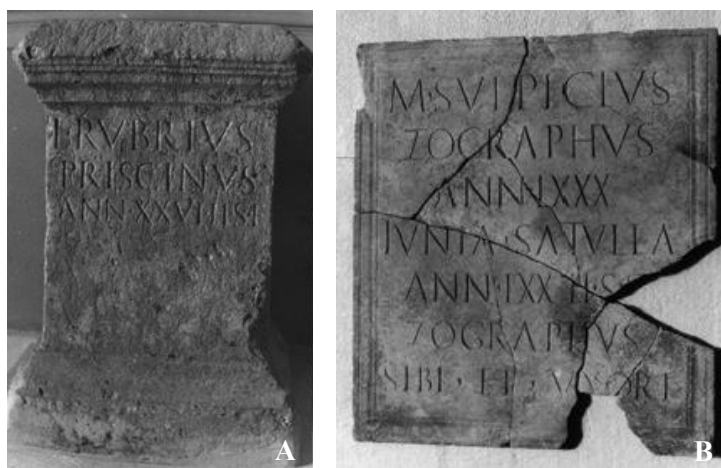 L·RVBRIVS
PRISCINVS
ANN·XXVI·H·S·E
A
M·SVLPICIVS
ZOGRAPHVS
ANN·LXXX
IVNIA·SATVLLA
ZOGRAPHVS
SIBI·ET·VXORI
B